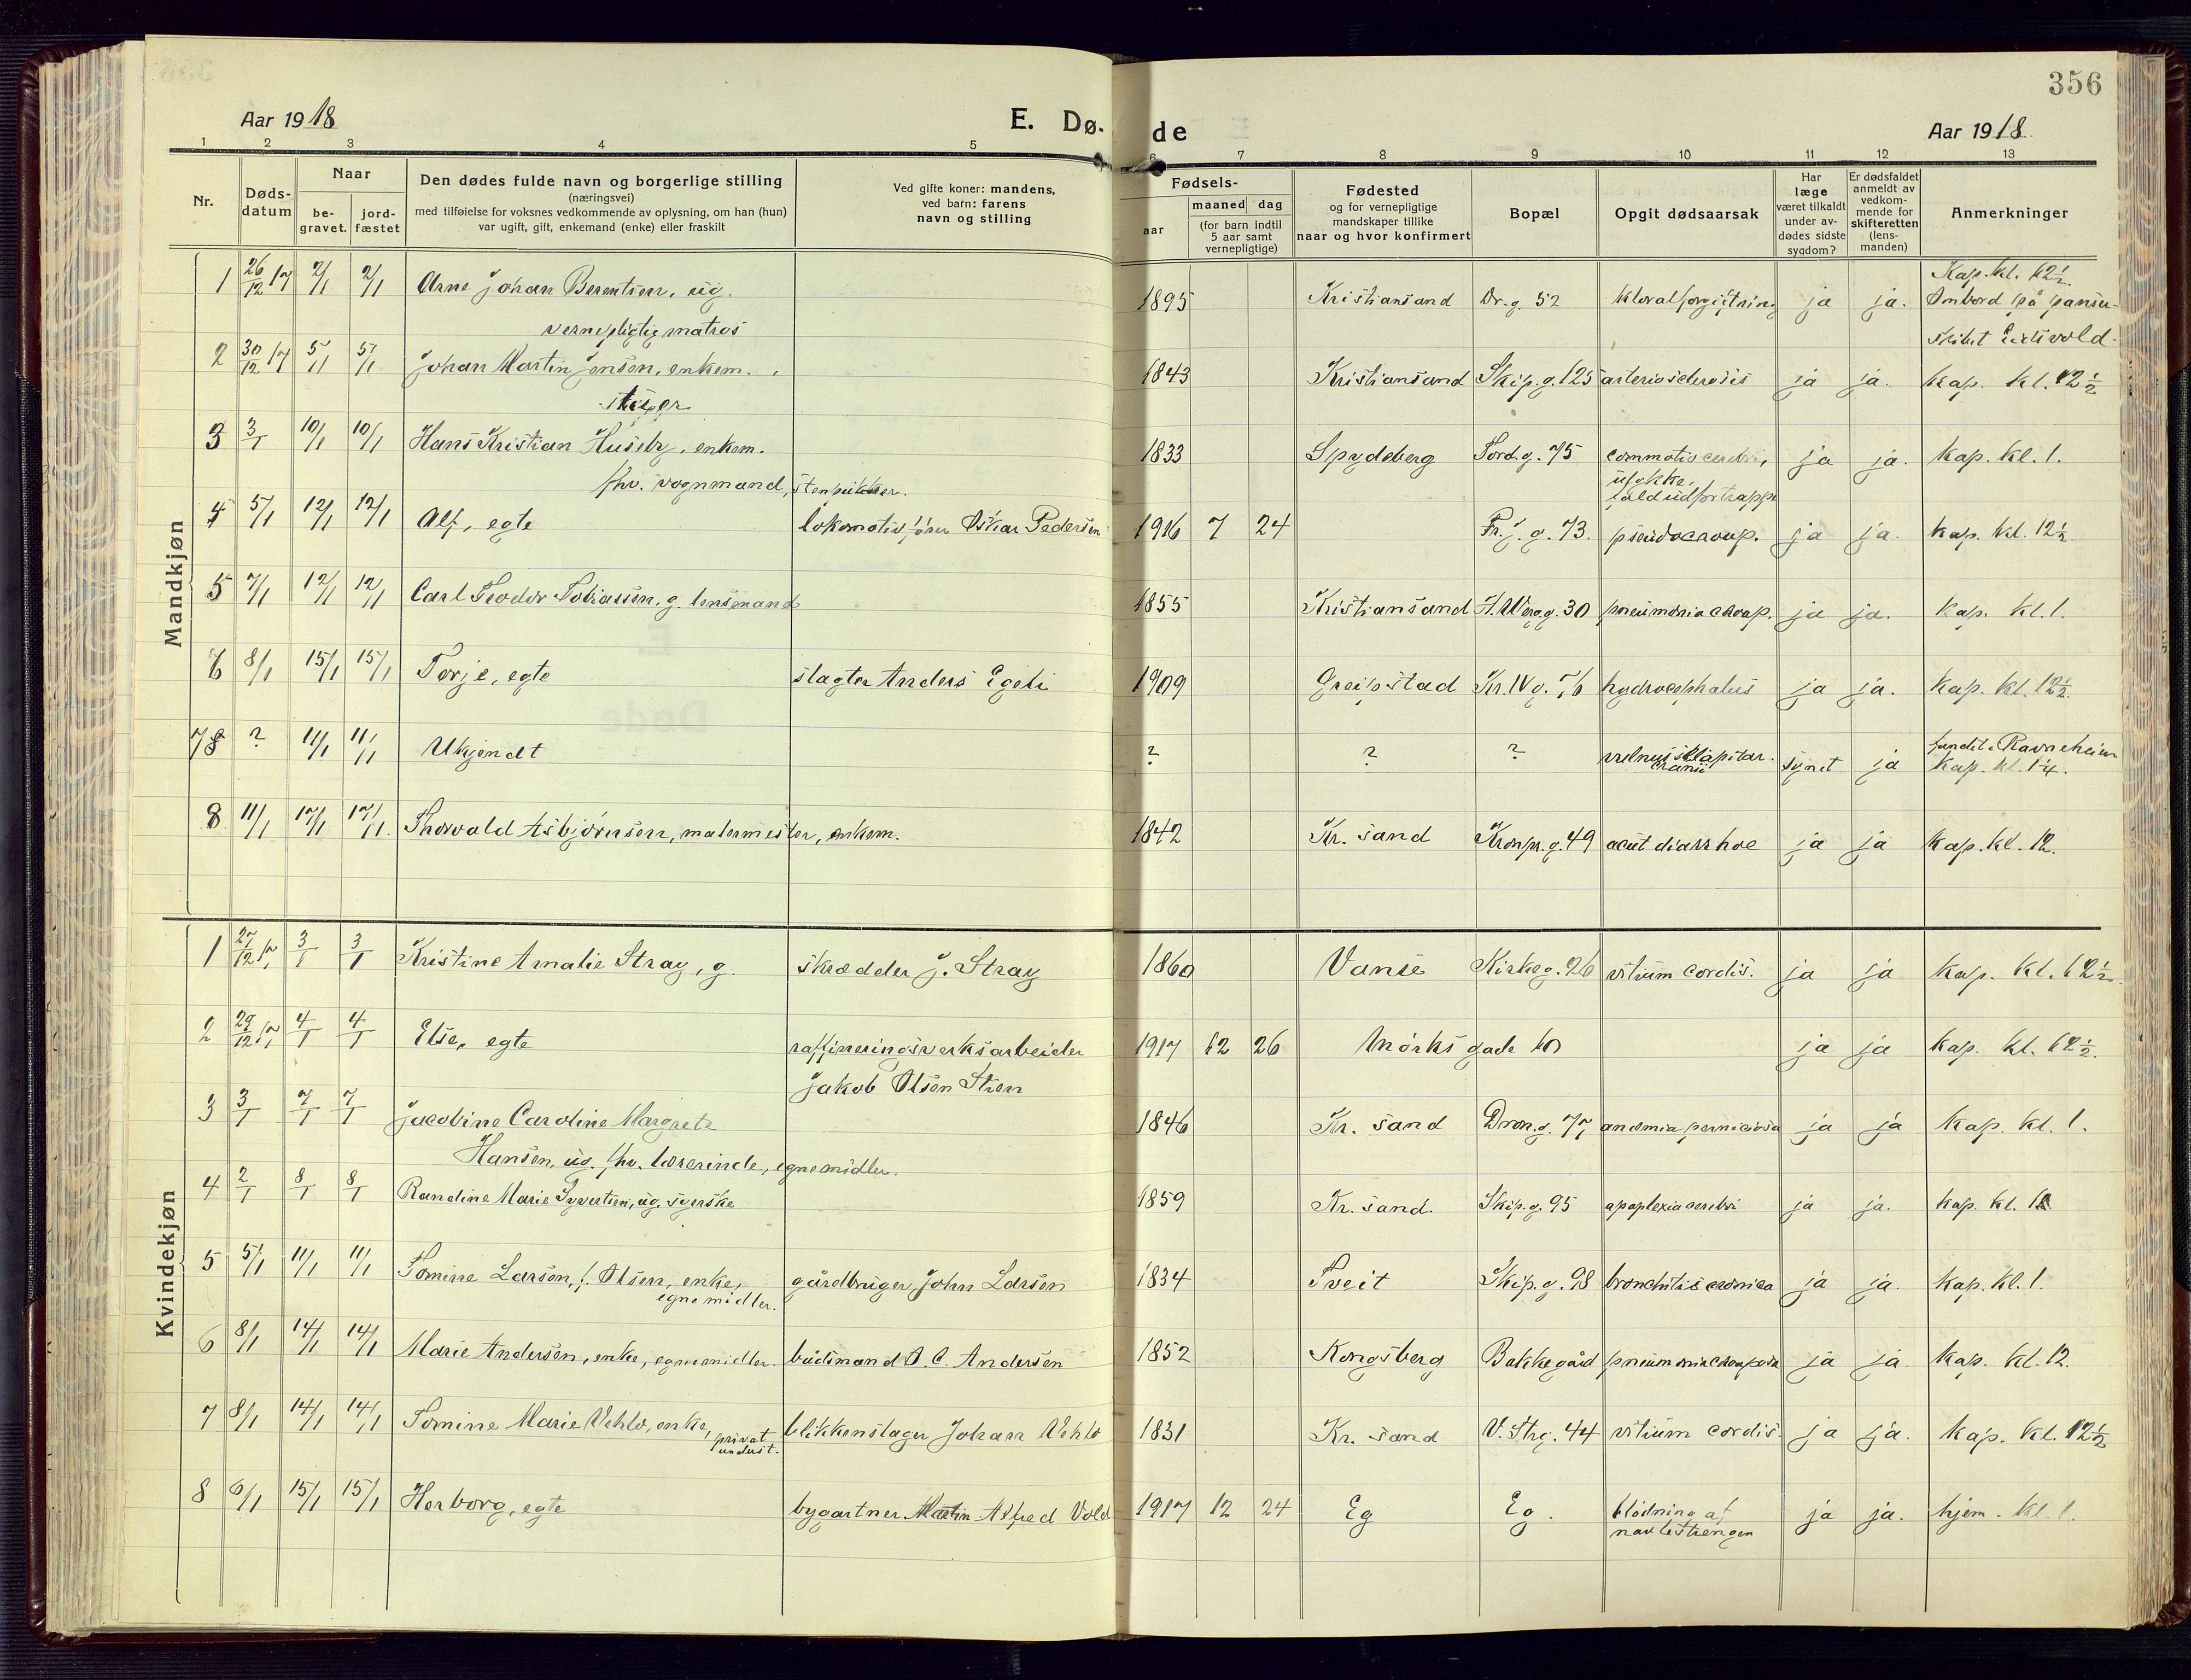 356
Aar 1918
E. Dø-
de
Aar 1918
1 2 3 4 5 6 7 8 9 10 11 12 13
Nr.
Døds-
datum
Naar
be-
gravet.
jord-
fæstet
Den dødes fulde navn og borgerlige stilling
(næringsvei)
med tilføielse for voksnes vedkommende av oplysning, om han (hun)
var ugift, gift, enkemand (enke) eller fraskilt
Ved gifte koner: mandens,
ved barn: farens
navn og stilling
Fødsels-
aar
maaned dag
(for barn indtil
5 aar samt
vernepligtige)
Fødested
og for vernepligtige
mandskaper tillike
naar og hvor konfirmert
Bopæl
Opgit dødsaarsak
Har
læge
været tilkaldt
under av-
dødes sidste
sygdom?
Er dødsfaldet
anmeldt av
vedkom-
mende for
skifteretten
(lens-
manden)
Anmerkninger
Mandkjøn
1 26/12 17 2/1 2/1 Arne Johan Berentsen, ug. 1895 Kristiansand Dr.g. 52 kloralforgiftning ja ja. Kap. kl. 12½
Ombord på panser-
vernepligtig matros
skibet Eidsvold.
2 30/12 17 5/1 5/1 Johan Martin Jensen, enkem. 1843 Kristiansand Skip.g. 125 arteriosclerosis ja ja. Kap. kl. 12½
3 3/1 10/1 10/1 Hans Kristian Huseby, enkem. 1833 Spydeberg Tord.g. 75 commotio cerebri, ja ja. Kap. kl. 1.
fhv. vognmand, stenpukker.
ulykke,
fald udfor trappe
4 5/1 12/1 12/1 Alf, egte lokomotivfører Oskar Pedersen 1916 7 24 Fr.g. 73. pseudocroup. ja ja. Kap. kl. 12½.
5 7/1 12/1 12/1 Carl Teodor Tobiassen, g. lensmand 1855 Kristiansand H.Werg.g. 30 pneumonia croup. ja ja. Kap. kl. 1.
6 8/1 15/1 15/1 Torje, egte slagter Anders Egeli 1909 Greipstad Kr.IV g. 76 hydrocephalus ja ja. Kap. kl. 12½.
7 ? 11/1 11/1 Ukjendt ? ? ? vulnus sklopitar. synet ja fundet i Ravneheien
cranii
Kap. kl. 1¼.
8 11/1 17/1 17/1 Thorvald Asbjørnsen, malermester, enkem. 1842 Kr.sand Kronpr.g. 49 acut diarrhoe ja ja Kap. kl. 12.
Kvindekjøn
1 27/12 17 3/1 3/1 Kristine Amalie Stray, g. skrædder J. Stray 1860 Vanse Kirkeg. 26 vitium cordis. ja ja Kap. kl. 12½
2 29/12 17 4/1 4/1 Else, egte raffineringsverksarbeider 1917 12 26 Mørks gade 10 ja ja Kap. kl. 12½.
Jakob Olsen Stien
3 3/1 7/1 7/1 Jacobine Caroline Margrete 1846 Kr.sand Dron.g. 77 anæmia perniciosa ja ja Kap. kl. 1.
Hansen, ug. fhv. lærerinde, egne midler.
4 2/1 8/1 8/1 Randine Marie Syvertsen, ug. syerske 1859 Kr.sand. Skip.g. 95 apoplexia cerebri ja ja. Kap. kl.
5 5/1 11/1 11/1 Tomine Larsen, f. Olsen, enke, gårdbruger John Larsen 1834 Tveit Skip.g. 98 bronchitis cronica ja ja. Kap. kl. 1.
egne midler.
6 8/1 14/1 14/1 Marie Andersen, enke, egne midler. bådsmand O. C. Andersen 1852 Kongsberg Bakkegård pneumonia crouposa ja ja. Kap. kl. 12.
7 8/1 14/1 14/1 Tomine Marie Vehlo, enke, blikkenslager Johan Vehlo 1831 Kr.sand V. Strg. 44 vitium cordis. ja ja. Kap. kl. 12½
privat
underst.
8 6/1 15/1 15/1 Herborg, egte bygartner Martin Alfred Vold 1917 12 24 Eg Eg. blødning af ja ja. hjem. kl. 1.
navlestrengen